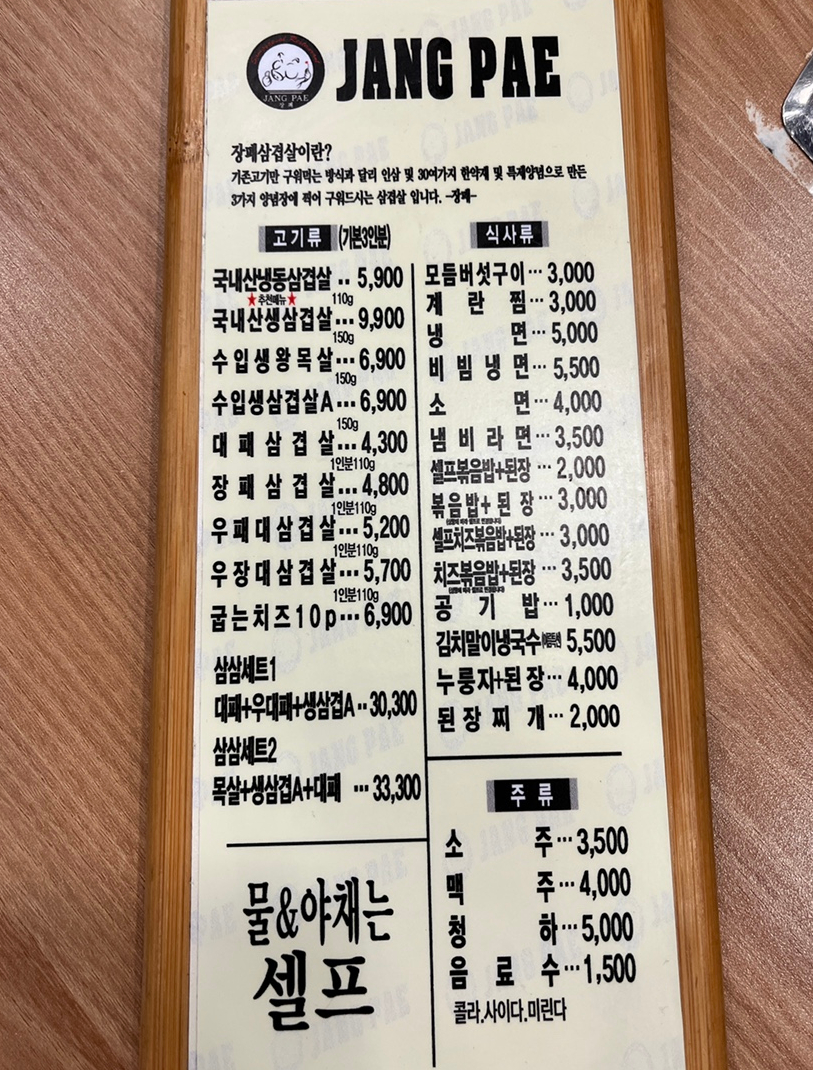 JANG PAE
JANG PAE
장 패
장패삼겹살이란?
기존고기만 구워먹는 방식과 달리 인삼 및 30여가지 한약재 및 특제양념으로 만든
3가지 양념장에 찍어 구워드시는 삼겹살 입니다. -장패-
고기류 (기본3인분)
국내산냉동삼겹살 ·· 5,900
★추천메뉴★ 110g
국내산생삼겹살··· 9,900
150g
수입생왕목살··· 6,900
150g
수입생삼겹살A··· 6,900
150g
대 패 삼 겹 살··· 4,300
1인분110g
장 패 삼 겹 살··· 4,800
1인분110g
우패대삼겹살··· 5,200
1인분110g
우장대삼겹살··· 5,700
1인분110g
굽는치즈10p··· 6,900
삼삼세트1
대패+우대패+생삼겹A·· 30,300
삼삼세트2
목살+생삼겹A+대패 ··· 33,300
물&야채는
셀프
식사류
모듬버섯구이··· 3,000
계 란 찜··· 3,000
냉 면··· 5,000
비 빔 냉 면··· 5,500
소 면··· 4,000
냄비라면··· 3,500
셀프볶음밥+된장 ··· 2,000
볶음밥+된장··· 3,000
셀프치즈볶음밥+된장··· 3,000
치즈볶음밥+된장··· 3,500
공 기 밥··· 1,000
김치말이냉국수 5,500
누룽지+된장··· 4,000
된 장 찌 개··· 2,000
주류
소 주··· 3,500
맥 주··· 4,000
청 하··· 5,000
음 료 수··· 1,500
콜라.사이다.미린다